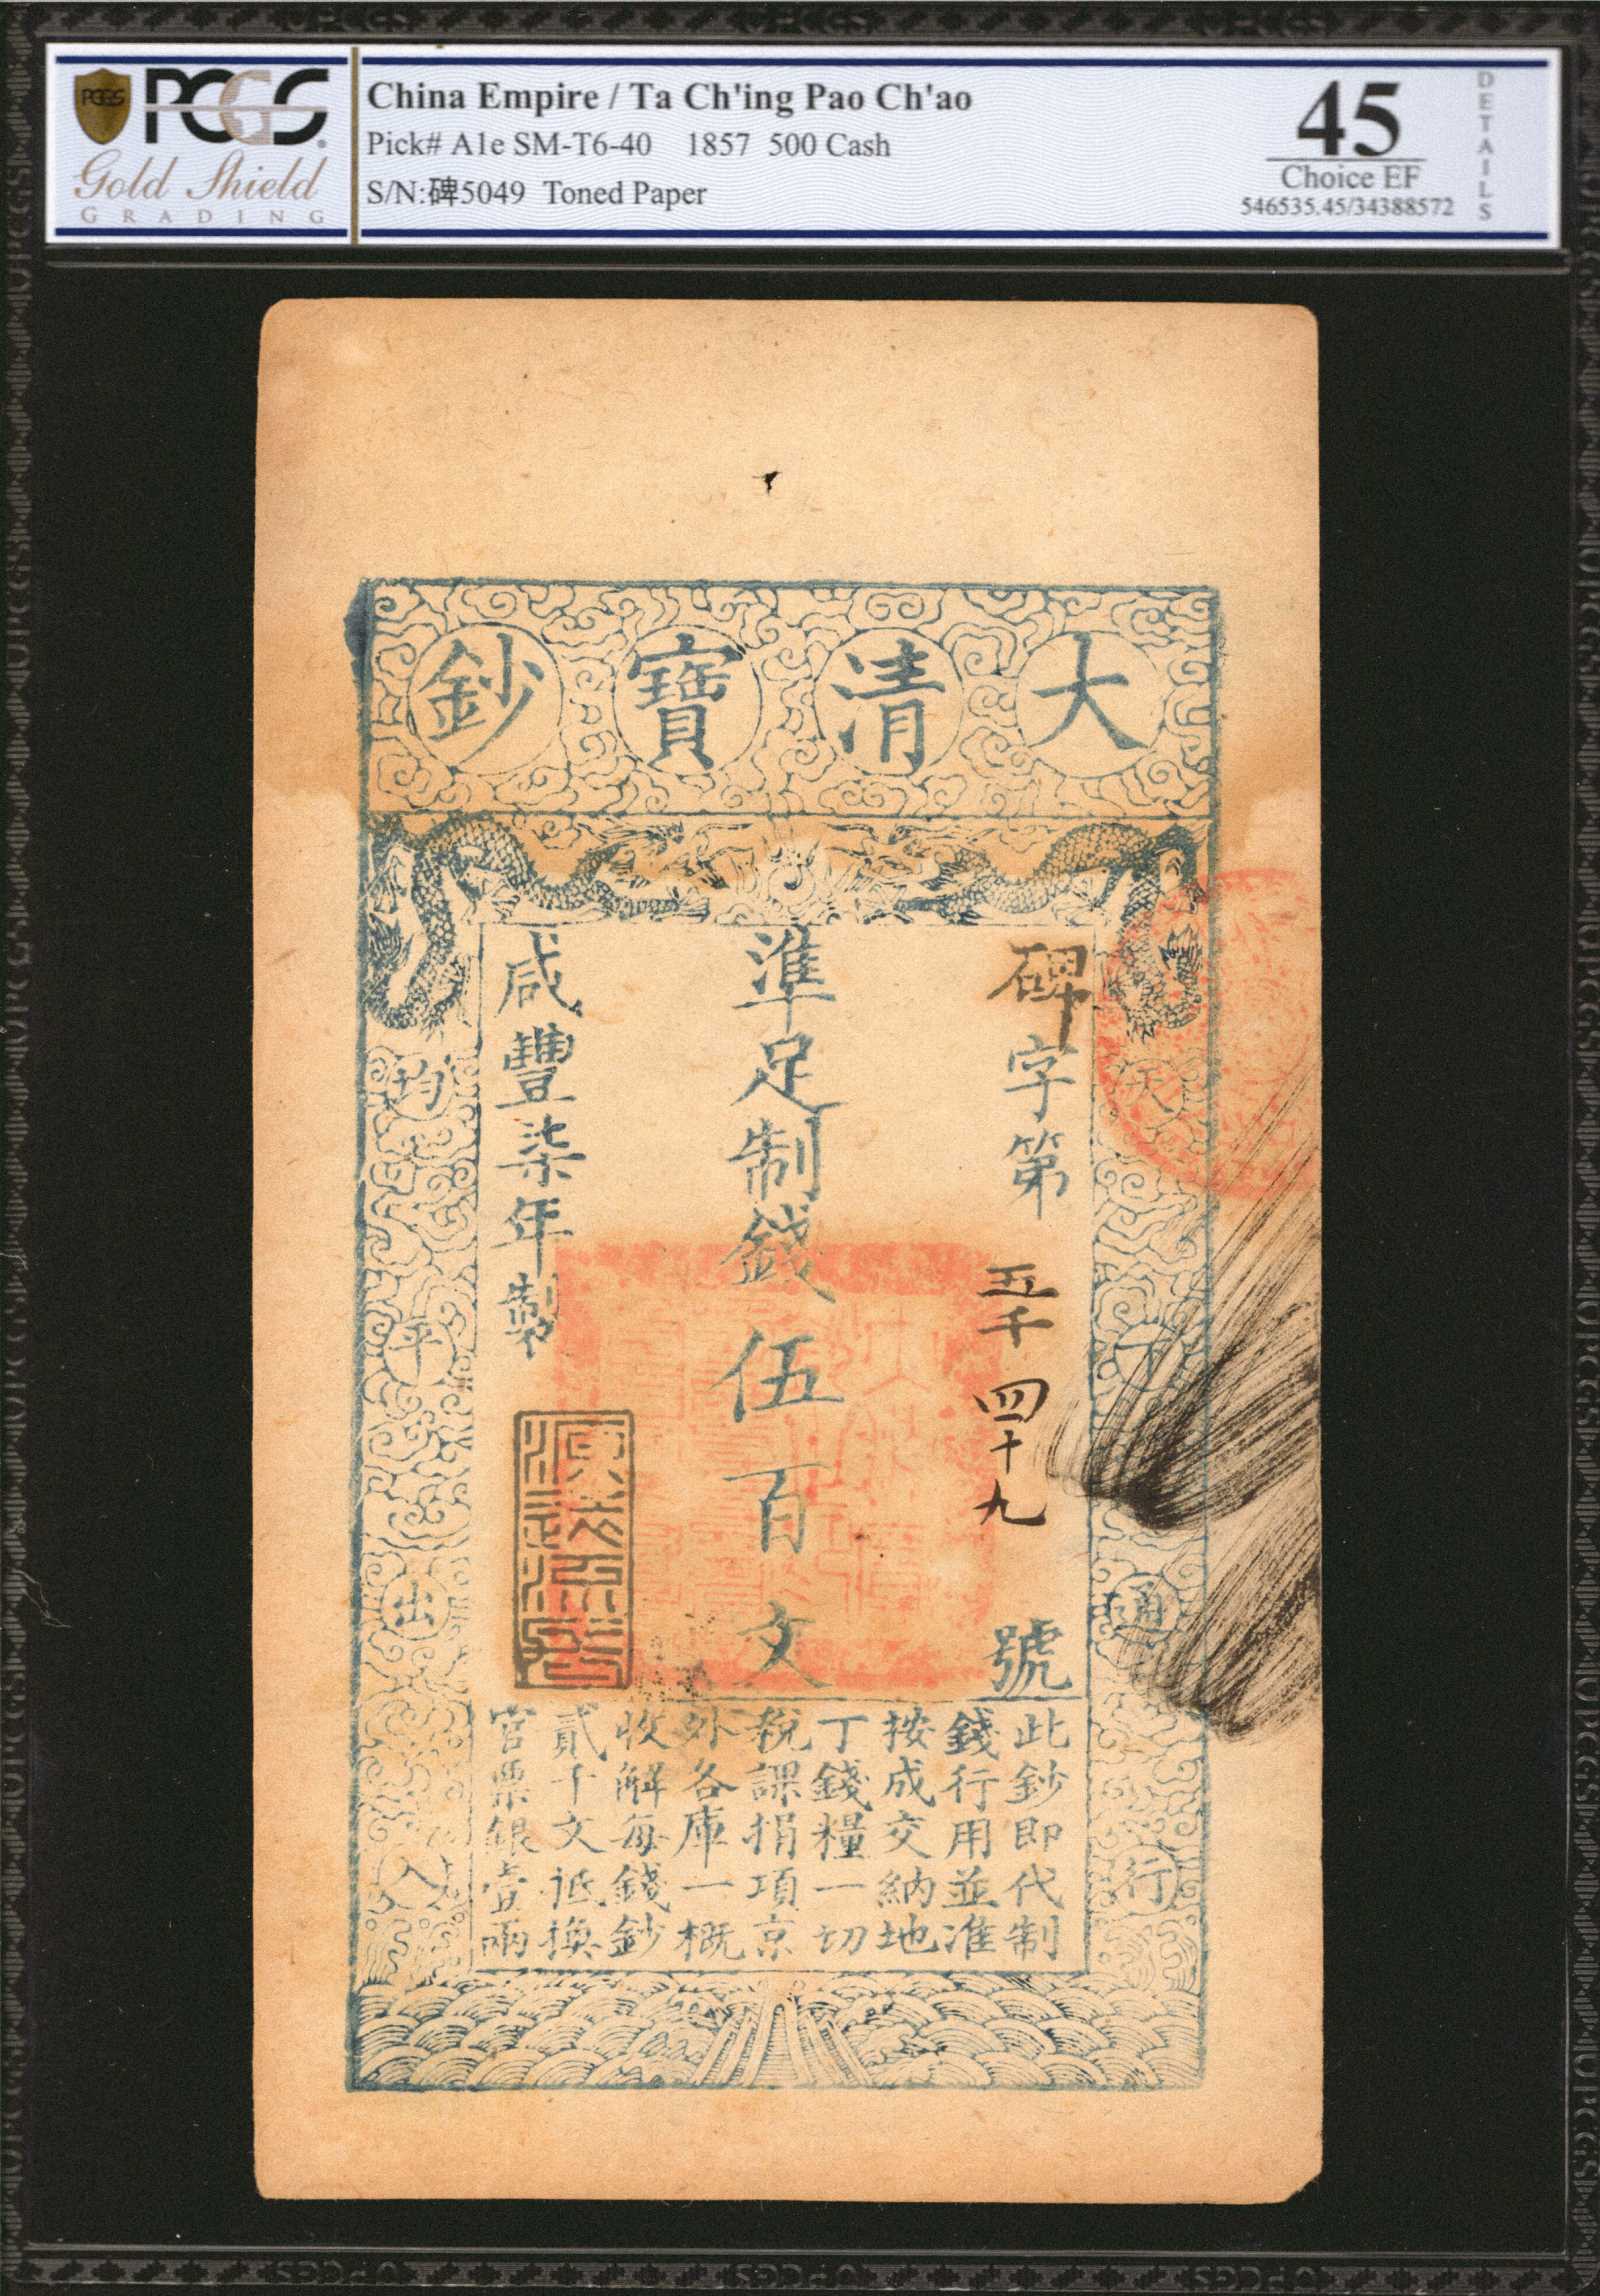 PCGS
Gold Shield
GRADING
China Empire / Ta Ch'ing Pao Ch'ao
Pick# A1e SM-T6-40 1857 500 Cash
S/N:碑5049 Toned Paper
45
Choice EF
546535.45/34388572
DETAILS
大清寶鈔
碑字第五千四十九號
準足制錢伍百文
咸豐柒年製
天下通行
均平出入
此鈔即代制
錢行用並準
按成交納地
丁錢糧一切
稅課捐項京
外各庫一概
收解每錢鈔
貳千文抵換
官票銀壹兩